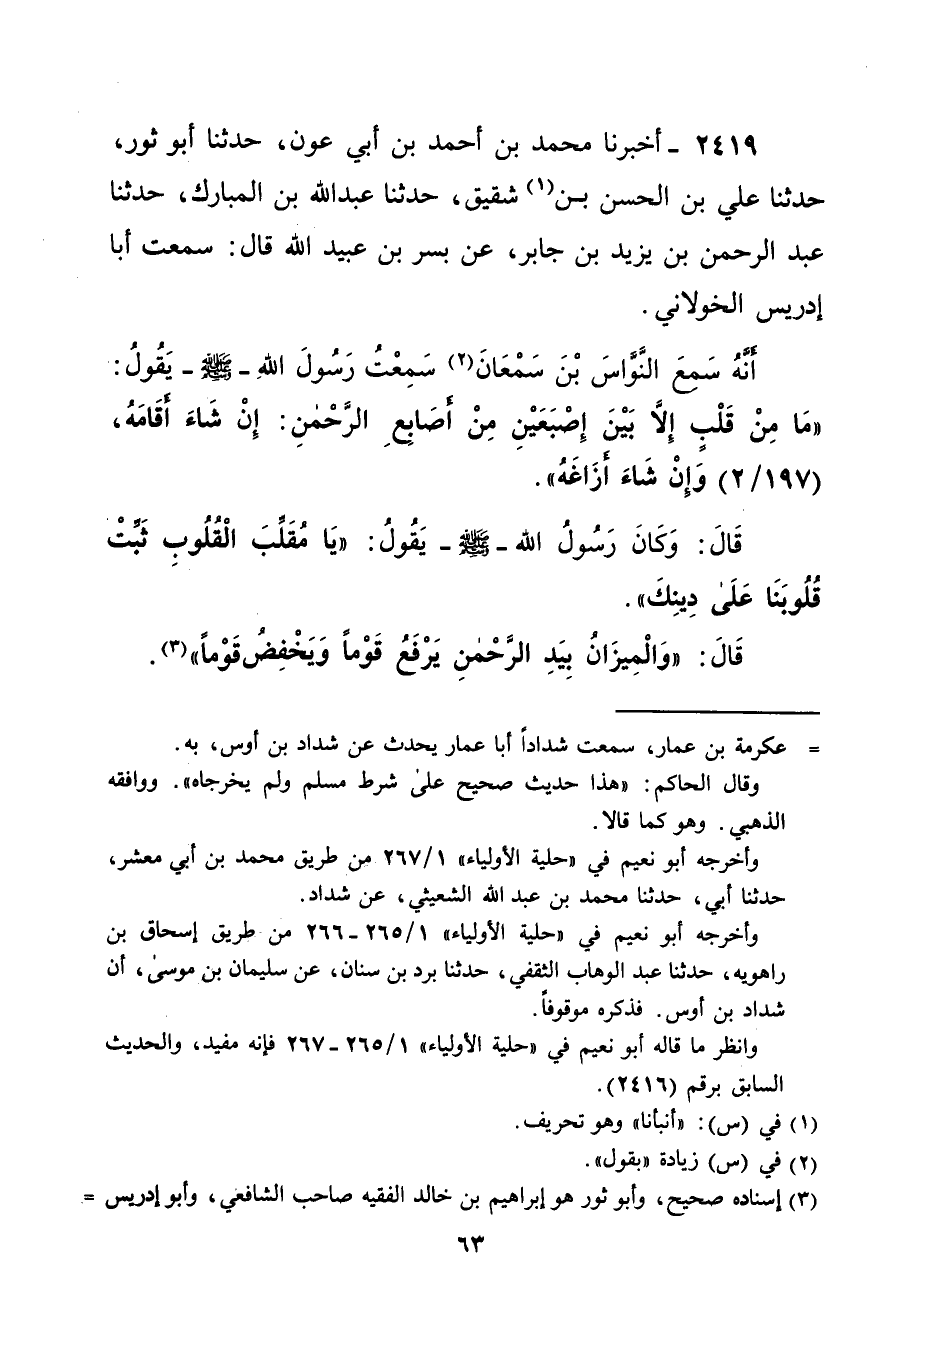 ٢٤١٩ - أخبرنا محمد بن أحمد بن أبي عون، حدثنا أبو ثور،
حدثنا علي بن الحسن بـن(١) شقيق، حدثنا عبدالله بن المبارك، حدثنا
عبد الرحمن بن يزيد بن جابر، عن بسر بن عبيد الله قال: سمعت أبا
إدريس الخولاني.
أَنَّهُ سَمِعَ النَّوَّاسَ بْنَ سَمْعَانَ(٢) سَمِعْتُ رَسُولَ اللهِ - ﷺ - يَقُولُ:
«مَا مِنْ قَلْبٍ إِلَّا بَيْنَ إِصْبَعَيْنِ مِنْ أَصَابِعِ الرَّحْمٰنِ: إِنْ شَاءَ أَقَامَهُ،
(٢/١٩٧) وَإِنْ شَاءَ أَزَاغَهُ».
قَالَ: وَكَانَ رَسُولُ الله - ﷺ - يَقُولُ: «يَا مُقَلِّبَ الْقُلُوبِ ثَبِّتْ
قُلُوبَنَا عَلَىٰ دِينِكَ».
قَالَ: «وَالْمِيزَانُ بِيَدِ الرَّحْمٰنِ يَرْفَعُ قَوْماً وَيَخْفِضُ قَوْماً»(٣).
= عكرمة بن عمار، سمعت شداداً أبا عمار يحدث عن شداد بن أوس، به.
وقال الحاكم: «هذا حديث صحيح علىٰ شرط مسلم ولم يخرجاه». ووافقه
الذهبي. وهو كما قالا.
وأخرجه أبو نعيم في «حلية الأولياء» ٢٦٧/١ من طريق محمد بن أبي معشر،
حدثنا أبي، حدثنا محمد بن عبد الله الشعيثي، عن شداد.
وأخرجه أبو نعيم في «حلية الأولياء» ٢٦٥/١ - ٢٦٦ من طريق إسحاق بن
راهويه، حدثنا عبد الوهاب الثقفي، حدثنا برد بن سنان، عن سليمان بن موسىٰ، أن
شداد بن أوس. فذكره موقوفاً.
وانظر ما قاله أبو نعيم في «حلية الأولياء» ٢٦٥/١ - ٢٦٧ فإنه مفيد، والحديث
السابق برقم (٢٤١٦).
(١) في (س): «أنبأنا» وهو تحريف.
(٢) في (س) زيادة «بقول».
(٣) إسناده صحيح، وأبو ثور هو إبراهيم بن خالد الفقيه صاحب الشافعي، وأبو إدريس =
٦٣